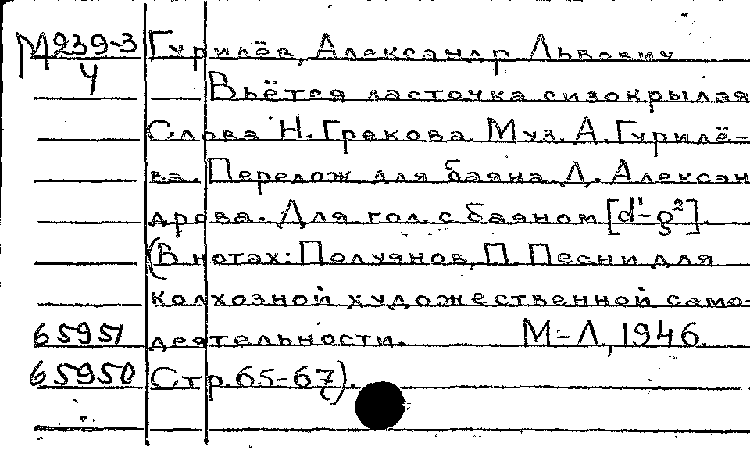 М 239-3 Гурилёв, Александр Львович
4 Вьётся ласточка сизокрылая
Слова Н. Грекова. Муз. А. Гурилё-
ва. Перелож. для баяна Л. Алексан
дрова. Для гол. с баяном [d¹-g²].
(В нотах: Полуянов, П. Песни для
колхозной художественной само-
65951 деятельности. М-Л, 1946.
65950 Стр. 65-67).